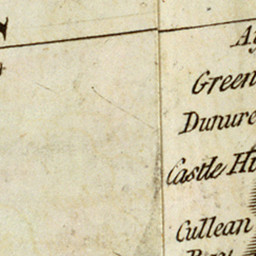 Green
Dunure
Castle Hi
Cullean